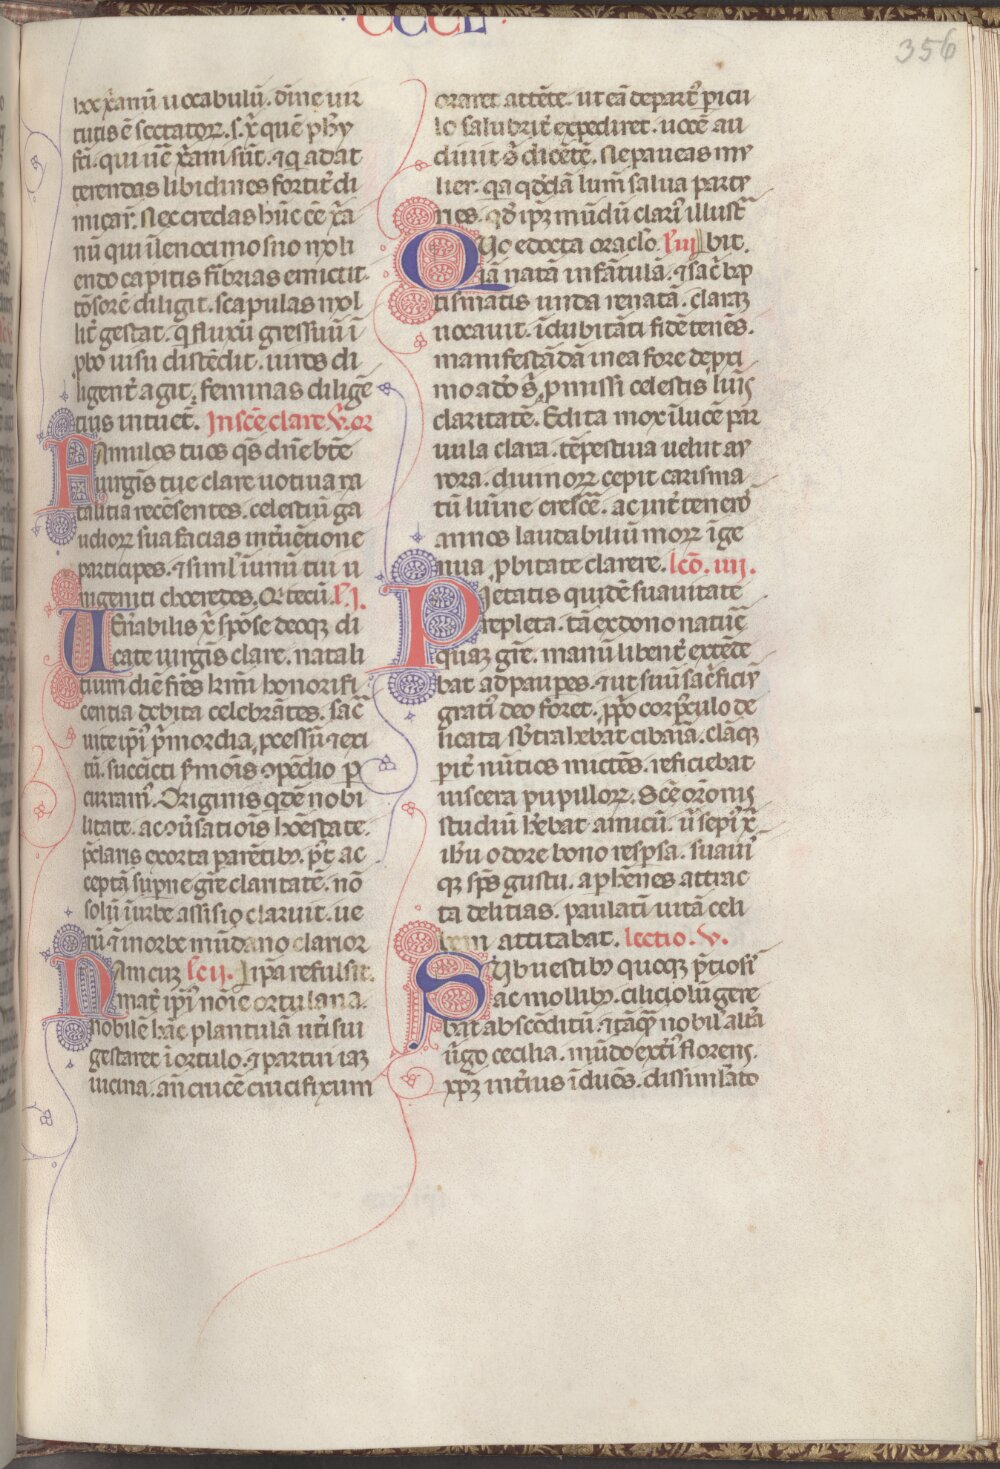 CCCL
356
hoc xp̄anū uocabulū. diuine uir
tutis ē sectatorꝝ. s. xp̄i quē phy
sici. qui uē xp̄iani sūt. ⁊ q̄ ad at
terendas libidines fortit̄ di
micant̄. Nec credas hūc eē xp̄ia
nū qui ī lenocinio suo moli
endo capitis fībrias emictit.
tōsorē diligit. scapulas mol
lit̄ gestat. q̄ fluxū gressum ī
ꝓbo uisu distēdit. uiros di
ligent̄ agit. feminas diligē
tius intuet̄. In scē clare v̄. or
Famulos tuos qs̄ dn̄e btē
uirgīs tue clare uotiua na
talitia recēsentes. celestiū ga
udiorꝝ sua facias int̄uētione
participes. ⁊ simil̄ unīti tui u
nigeniti choeredes. Qi tecū. l̄ j.
Uenerabilis xp̄i spōse deoqꝫ di
cate uirgīs clare. natali
tium diē frēs kr̄mi honorifi
centia debita celebrātes. sac̄
uite ip̄i p̄mordia, ꝓcessū ⁊ exi
tū. succīcti ẜmōis ꝯpēdio ꝑ
curram̄. Originis qdē nobi
litate. ac ꝯūsatiōis hōestate.
p̄claris exorta parētibꝫ. p̄t ac
ceptā sup̄ne gr̄e claritatē. nō
solū ī urbe assisio claruit. ue
rū ⁊ ī morbe mūdano clarior
Nam cuꝫ lc̄ ij. ī ip̄a refulsit.
mat̄ ip̄i noīe ortulana.
nobilē hāc plantulā ut̄ sui
gestaret ī ortulo. ⁊ partui iaꝫ
uicina. an̄ crucē crucifixum
oraret attēte. ut eā depart̄ picu
lo salubrit̄ expediret. uocē au
diuit s̄ dicētē. Ne paueas mu
lier. qa qdā lum̄ salua partu
ries. qd̄ ipꝫ mūdū clari illust̄
Quo edocta oraclo. l̄ iij bit.
iā natā infātulā. ⁊ sac̄ bap
tismatis unda renatā. claraꝫ
uocauit. īdubitāti fidē tenēs.
manifestādā in ea fore de pri
mo ado s̄ ꝓmissi celestis lumis
claritatē. Edita mox ī lucē par
uula clara. tēpestiua uelut au
rora. diuinorꝝ cepit carisma
tū lumīe cresce̅. ac int̄ teneros
annos laudabiliū morꝝ īge
nua ꝓbitate clarere. lcō. iiij.
Pietatis quidē suauitate
repleta. tā ex dono natiue
quaꝫ gr̄e. manū libent̄ extēde
bat ad pauꝑes. ⁊ ut suū sac̄ficiū
gratū deo foret. ꝓp̄o corp̄culo de
licata sb̄trahebat cibaria. clāqꝫ
ꝑit̄ nūtios mictēs. reficiebat
uiscera pupillorꝝ. Scē orōnis
studiū h̄ebat amicū. ū sepi xp̄i
ihu odore bono resp̄sa. suaui
qꝫ sp̄s gustu. aphēnes attrac
ta delitias. paulatī uitā celi
bem attitabat. lectio. v.
Sub uestibꝫ quoqꝫ p̄tiosis
ac mollibꝫ. ciliciolū gere
bat abscōditū. ⁊ tāqꝫ nobil̄ alt̄a
ūgo cecilia. mūdo ext̄i florens.
xp̄ꝫ int̄ius īduēs. dissimlato